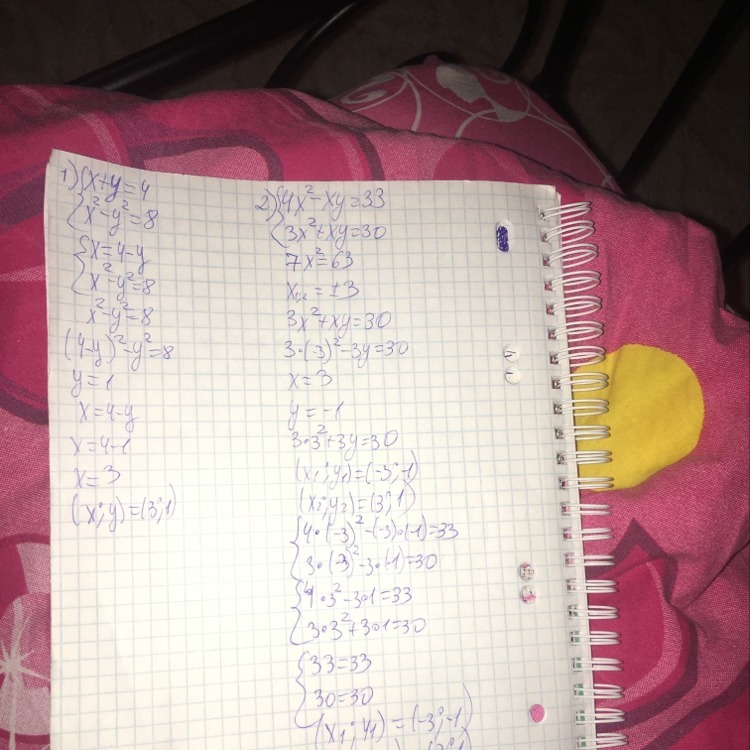 1) {x+y=4
x²-y²=8
{x=4-y
x²-y²=8
x²-y²=8
(4-y)²-y²=8
y=1
x=4-y
x=4-1
x=3
(x;y)=(3;1)
2) {4x²-xy=33
3x²+xy=30
7x²=63
x₁,₂=±3
3x²+xy=30
3·(-3)²-3y=30
x=3
y=-1
3·3²+3y=30
(x₁;y₁)=(-3;-1)
(x₂;y₂)=(3;1)
{4·(-3)²-(-3)·(-1)=33
3·(-3)²-3·(-1)=30
{4·3²-3·1=33
3·3²+3·1=30
{33=33
30=30
(x₁;y₁)=(-3;-1)